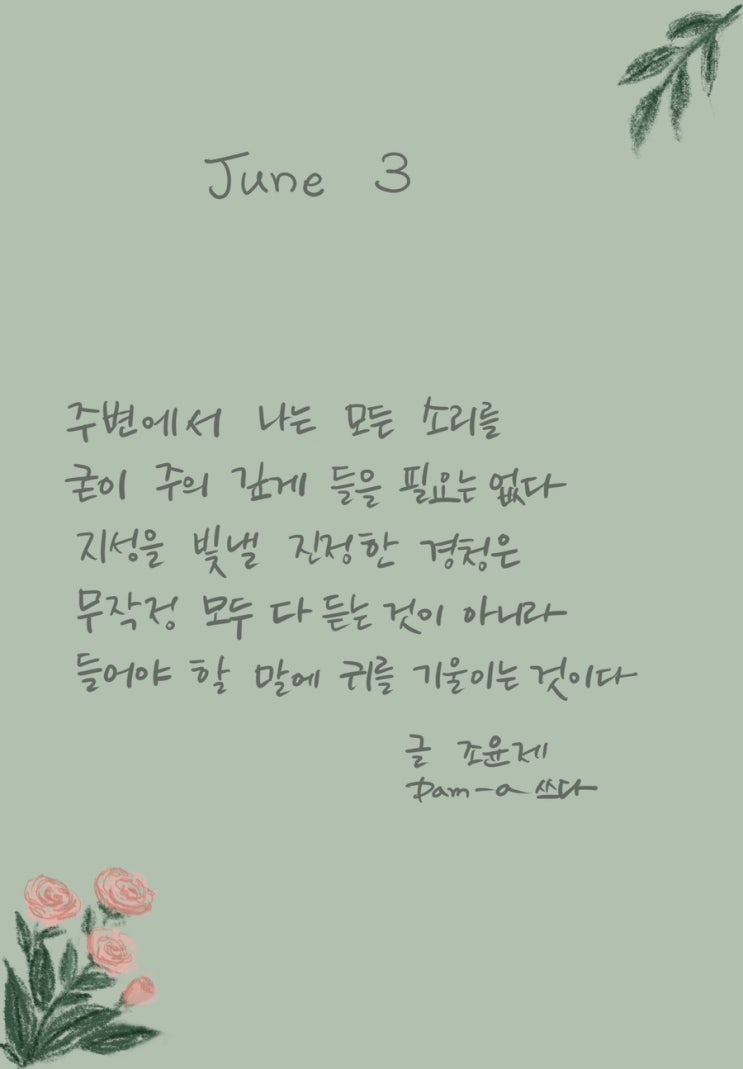 June 3
주변에서 나는 모든 소리를
굳이 주의 깊게 들을 필요는 없다
지성을 빛낼 진정한 경청은
무작정 모두 다 듣는 것이 아니라
들어야 할 말에 귀를 기울이는 것이다
글 조윤제
Dam-a 쓰다